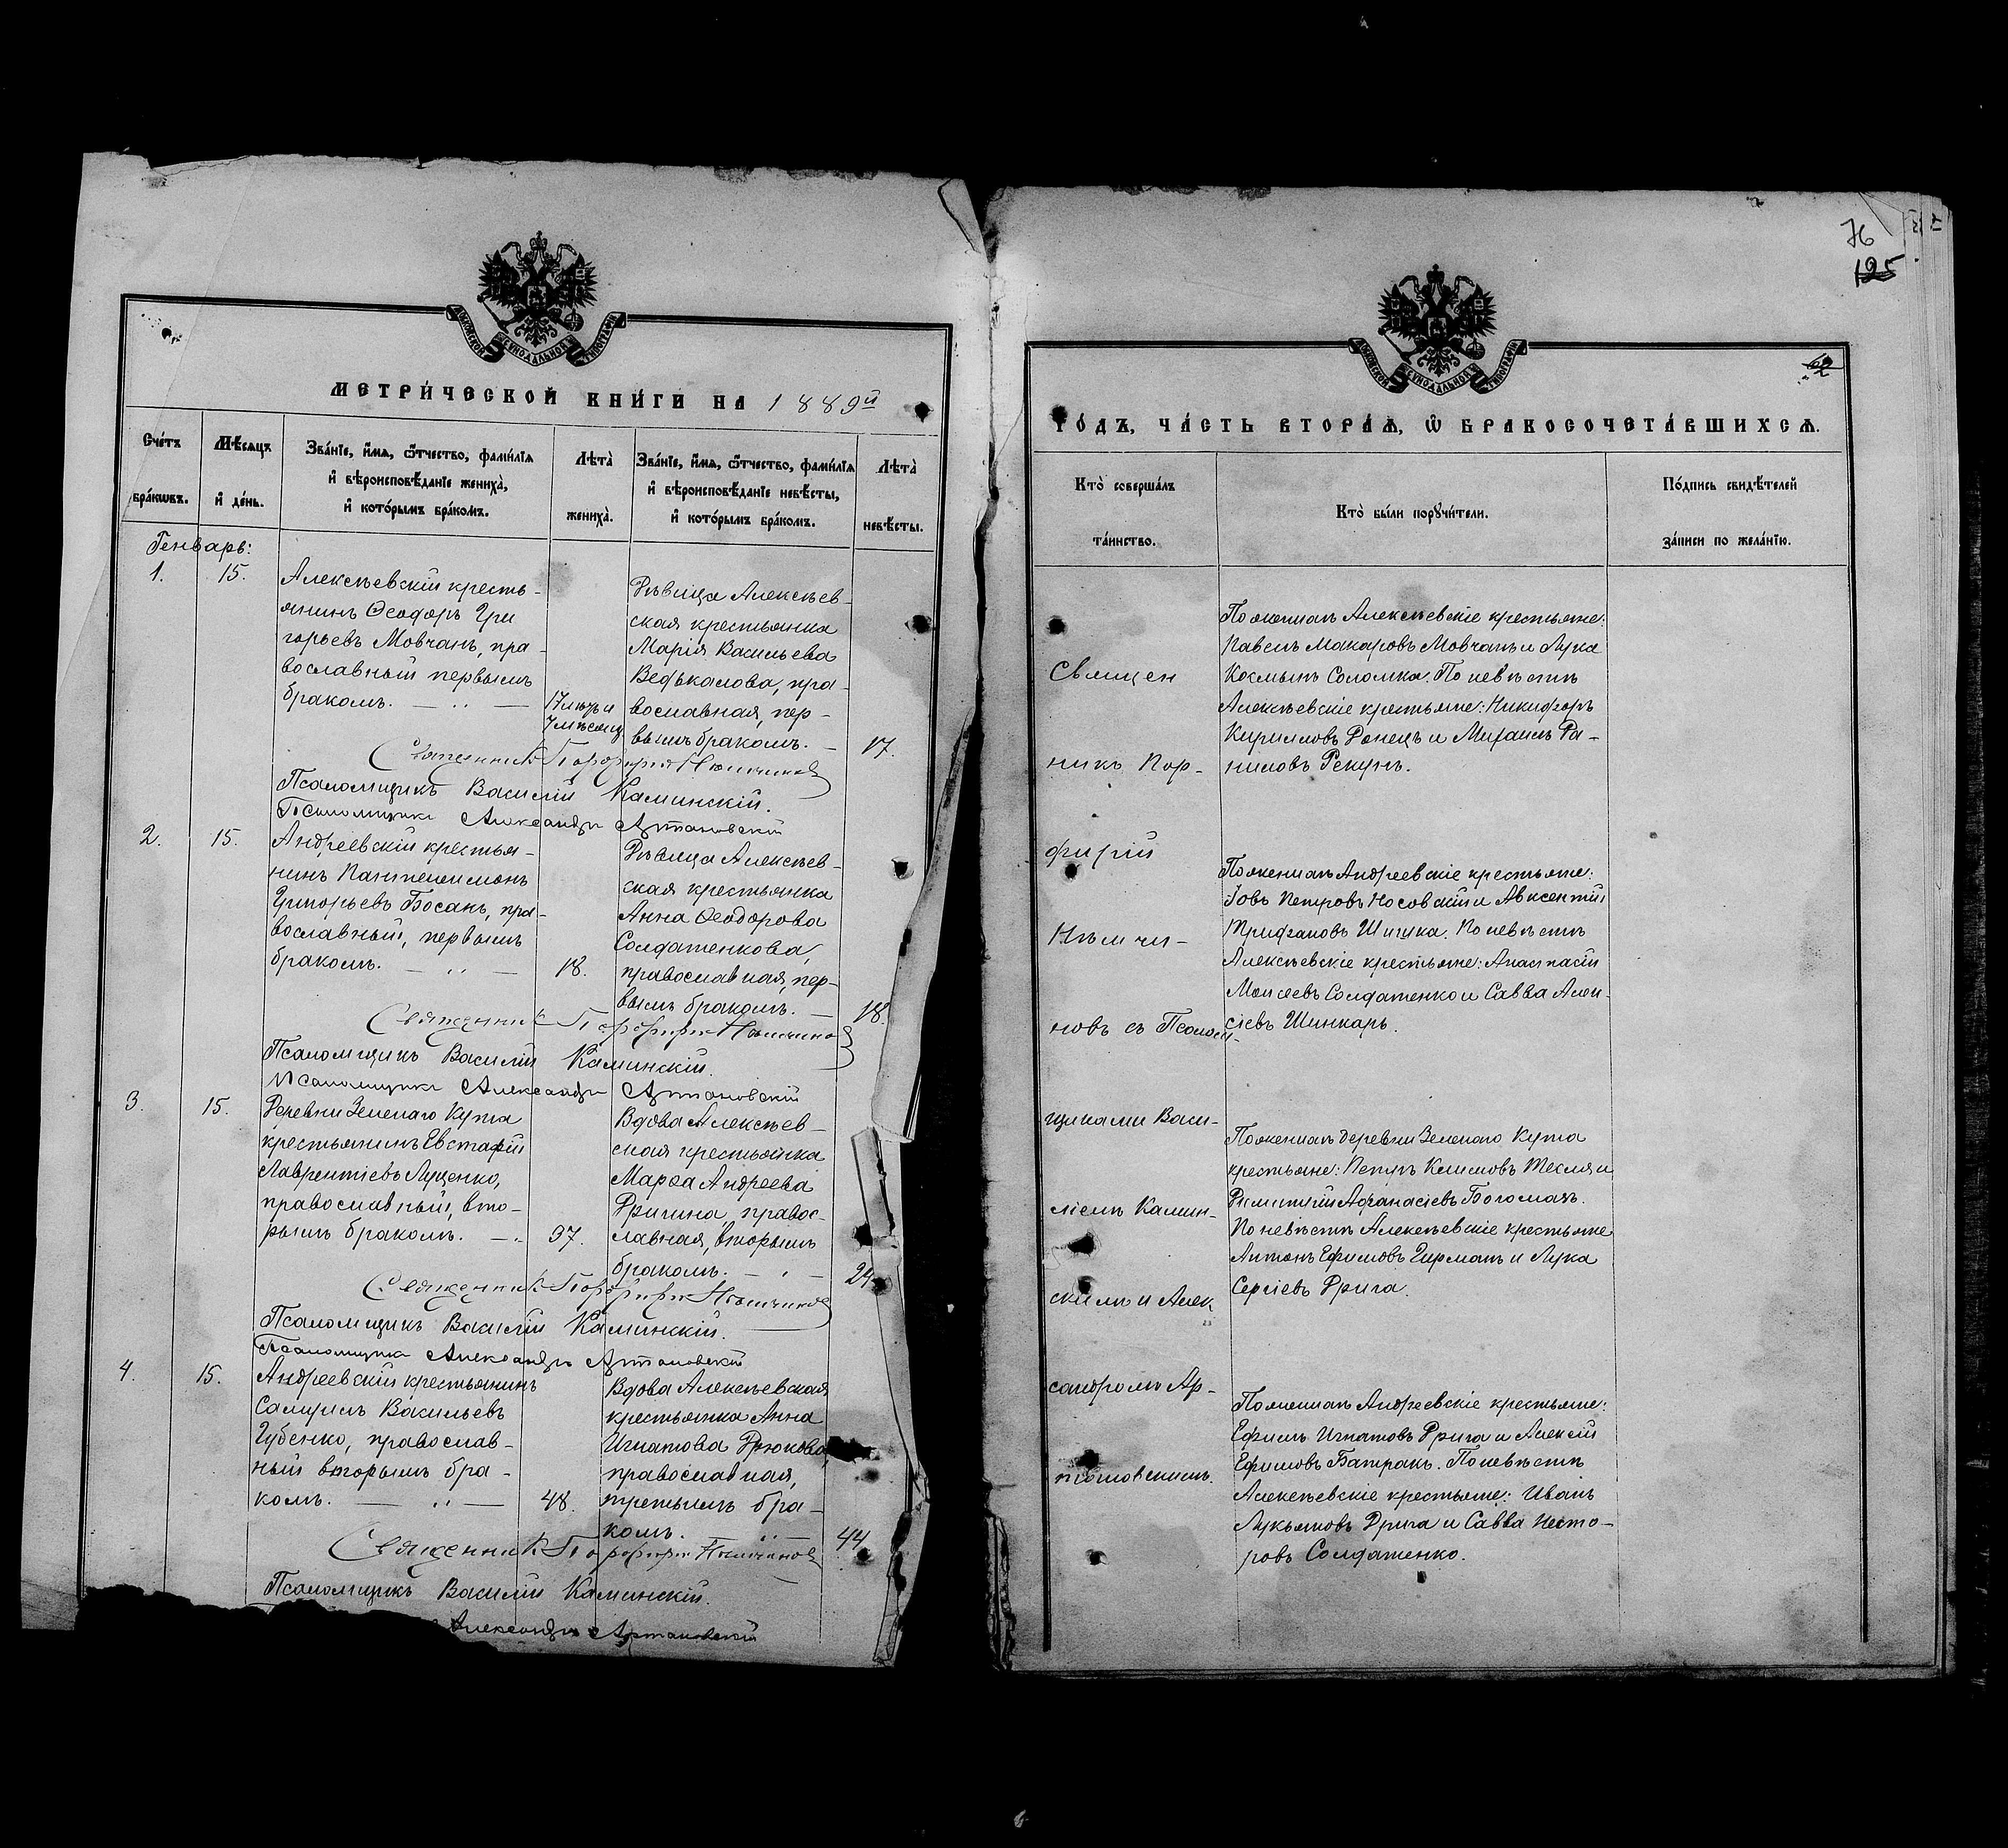 76
125
62
МОСКОВСКОЙ СѴНОДАЛЬНОЙ ТИПОГРАФІИ
МЕТРИ́ЧЕСКОЙ КНИ́ГИ НА 1889й
Сче́тъ бра́кѡвъ.
Мѣ́сяцъ и҆ де́нь.
Зва́нїе, и҆́мѧ, ѻ҆́тчество, фами́лїѧ
и҆ вѣроисповѣ́данїе жениха̀,
и҆ кото́рымъ бра́комъ.
Лѣта̀ жениха̀.
Зва́нїе, и҆́мѧ, ѻ҆́тчество, фами́лїѧ
и҆ вѣроисповѣ́данїе невѣ́сты,
и҆ кото́рымъ бра́комъ.
Лѣта̀ невѣ́сты.
Генварь:
1. 15.
Алексѣевскій кресть-
янинъ Ѳеодоръ Гри
горьевъ Мовчанъ, пра-
вославный первымъ
бракомъ. — „ —
17 лѣтъ и
7 мѣсяц.
Дѣвица Алексѣев-
ская крестьянка
Марія Васильева
Ведькалова, пра-
вославная, пер-
вымъ бракомъ. —
17.
Священникъ Порфирій Нѣмчиновъ
Псаломщикъ Василій Каминскій.
Псаломщикъ Александръ Артановскій
2. 15.
Андреевскій крестья-
нинъ Пантелеимонъ
Григорьевъ Босакъ, пра-
вославный, первымъ
бракомъ. — „ —
18.
Дѣвица Алексѣев-
ская крестьянка
Анна Ѳеодорова
Солдатенкова,
православная, пер-
вымъ бракомъ. —
18.
Священникъ Порфирій Нѣмчиновъ
Псаломщикъ Василій Каминскій.
Псаломщикъ Александръ Артановскій
3. 15.
Деревни Зеленаго Кута
крестьянинъ Евстафій
Лаврентіевъ Луценко,
православный, вто-
рымъ бракомъ. —
37.
Вдова Алексѣев-
ская крестьянка
Марѳа Андреева
Дригина, правос-
лавная, вторымъ
бракомъ. —
24
Священникъ Порфирій Нѣмчиновъ
Псаломщикъ Василій Каминскій.
Псаломщикъ Александръ Артановскій
4. 15.
Андреевскій крестьянинъ
Васильевъ
Губенко, православ-
ный вторымъ бра-
комъ. — „ —
48.
Вдова Алексѣевская
крестьянка Анна
Игнатова Дрюкова,
православная,
третьимъ бра-
комъ.
44
Священникъ Порфирій Нѣмчиновъ
Псаломщикъ Василій Каминскій.
Александръ Артановскій
РО́ДЪ, ЧА́СТЬ ВТОРА́Ѧ, Ѽ БРАКОСОЧЕТА́ВШИХСѦ.
Кто̀ соверша́лъ та́инство.
Кто̀ бы́ли порꙋчи́тели.
По́дпись свидѣ́телей за́писи по жела́нїю.
Священ
никъ Пор-
фирій
Нѣмчи-
новъ съ Псалом-
щиками Васи-
ліемъ Камин-
скимъ и Алек
сандромъ Ар-
тановскимъ.
По женихѣ Алексѣевскіе крестьяне:
Павелъ Макаровъ Мовчанъ и Лука
Космынъ Соломка. По невѣстѣ
Алексѣевскіе крестьяне: Никифоръ
Кирилловъ Донецъ и Михаилъ Да-
ниловъ Рекунъ.
По женихѣ Андреевскіе крестьяне:
Іовъ Петровъ Носовскій и Авксентій
Трифановъ Шипика. По невѣстѣ
Алексѣевскіе крестьяне: Анастасій
Моисеевъ Солдатенко и Савва Алек-
сіевъ Шинкарь.
По женихѣ деревни Зеленаго Кута
крестьяне: Петръ Климовъ Текля и
Димитрій Аѳанасіевъ Богомазъ.
По невѣстѣ Алексѣевскіе крестьяне
Антонъ Ефимовъ Гирманъ и Лука
Сергіевъ Дрига.
По женихѣ Андреевскіе крестьяне:
Ефимъ Игнатовъ Дрига и Алексій
Ефимовъ Батракъ. По невѣстѣ
Алексѣевскіе крестьяне: Иванъ
Лукьяновъ Дрига и Савва Несто-
ровъ Солдатенко.